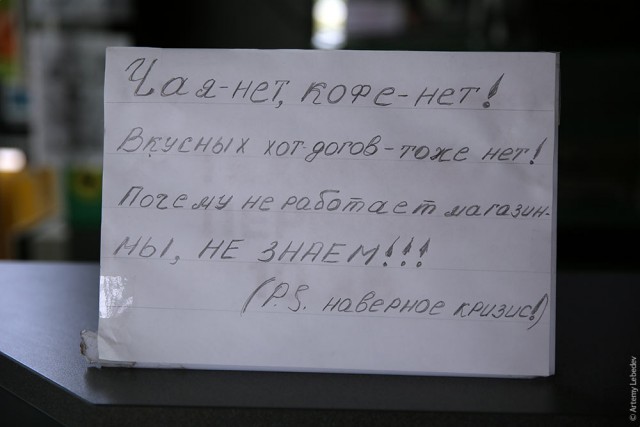 Чая-нет, кофе-нет!
Вкусных хот-догов-тоже нет!
Почему не работает магазин-
мы, НЕ ЗНАЕМ!!!
(P.S. наверное кризис!)
© Artemy Lebedev